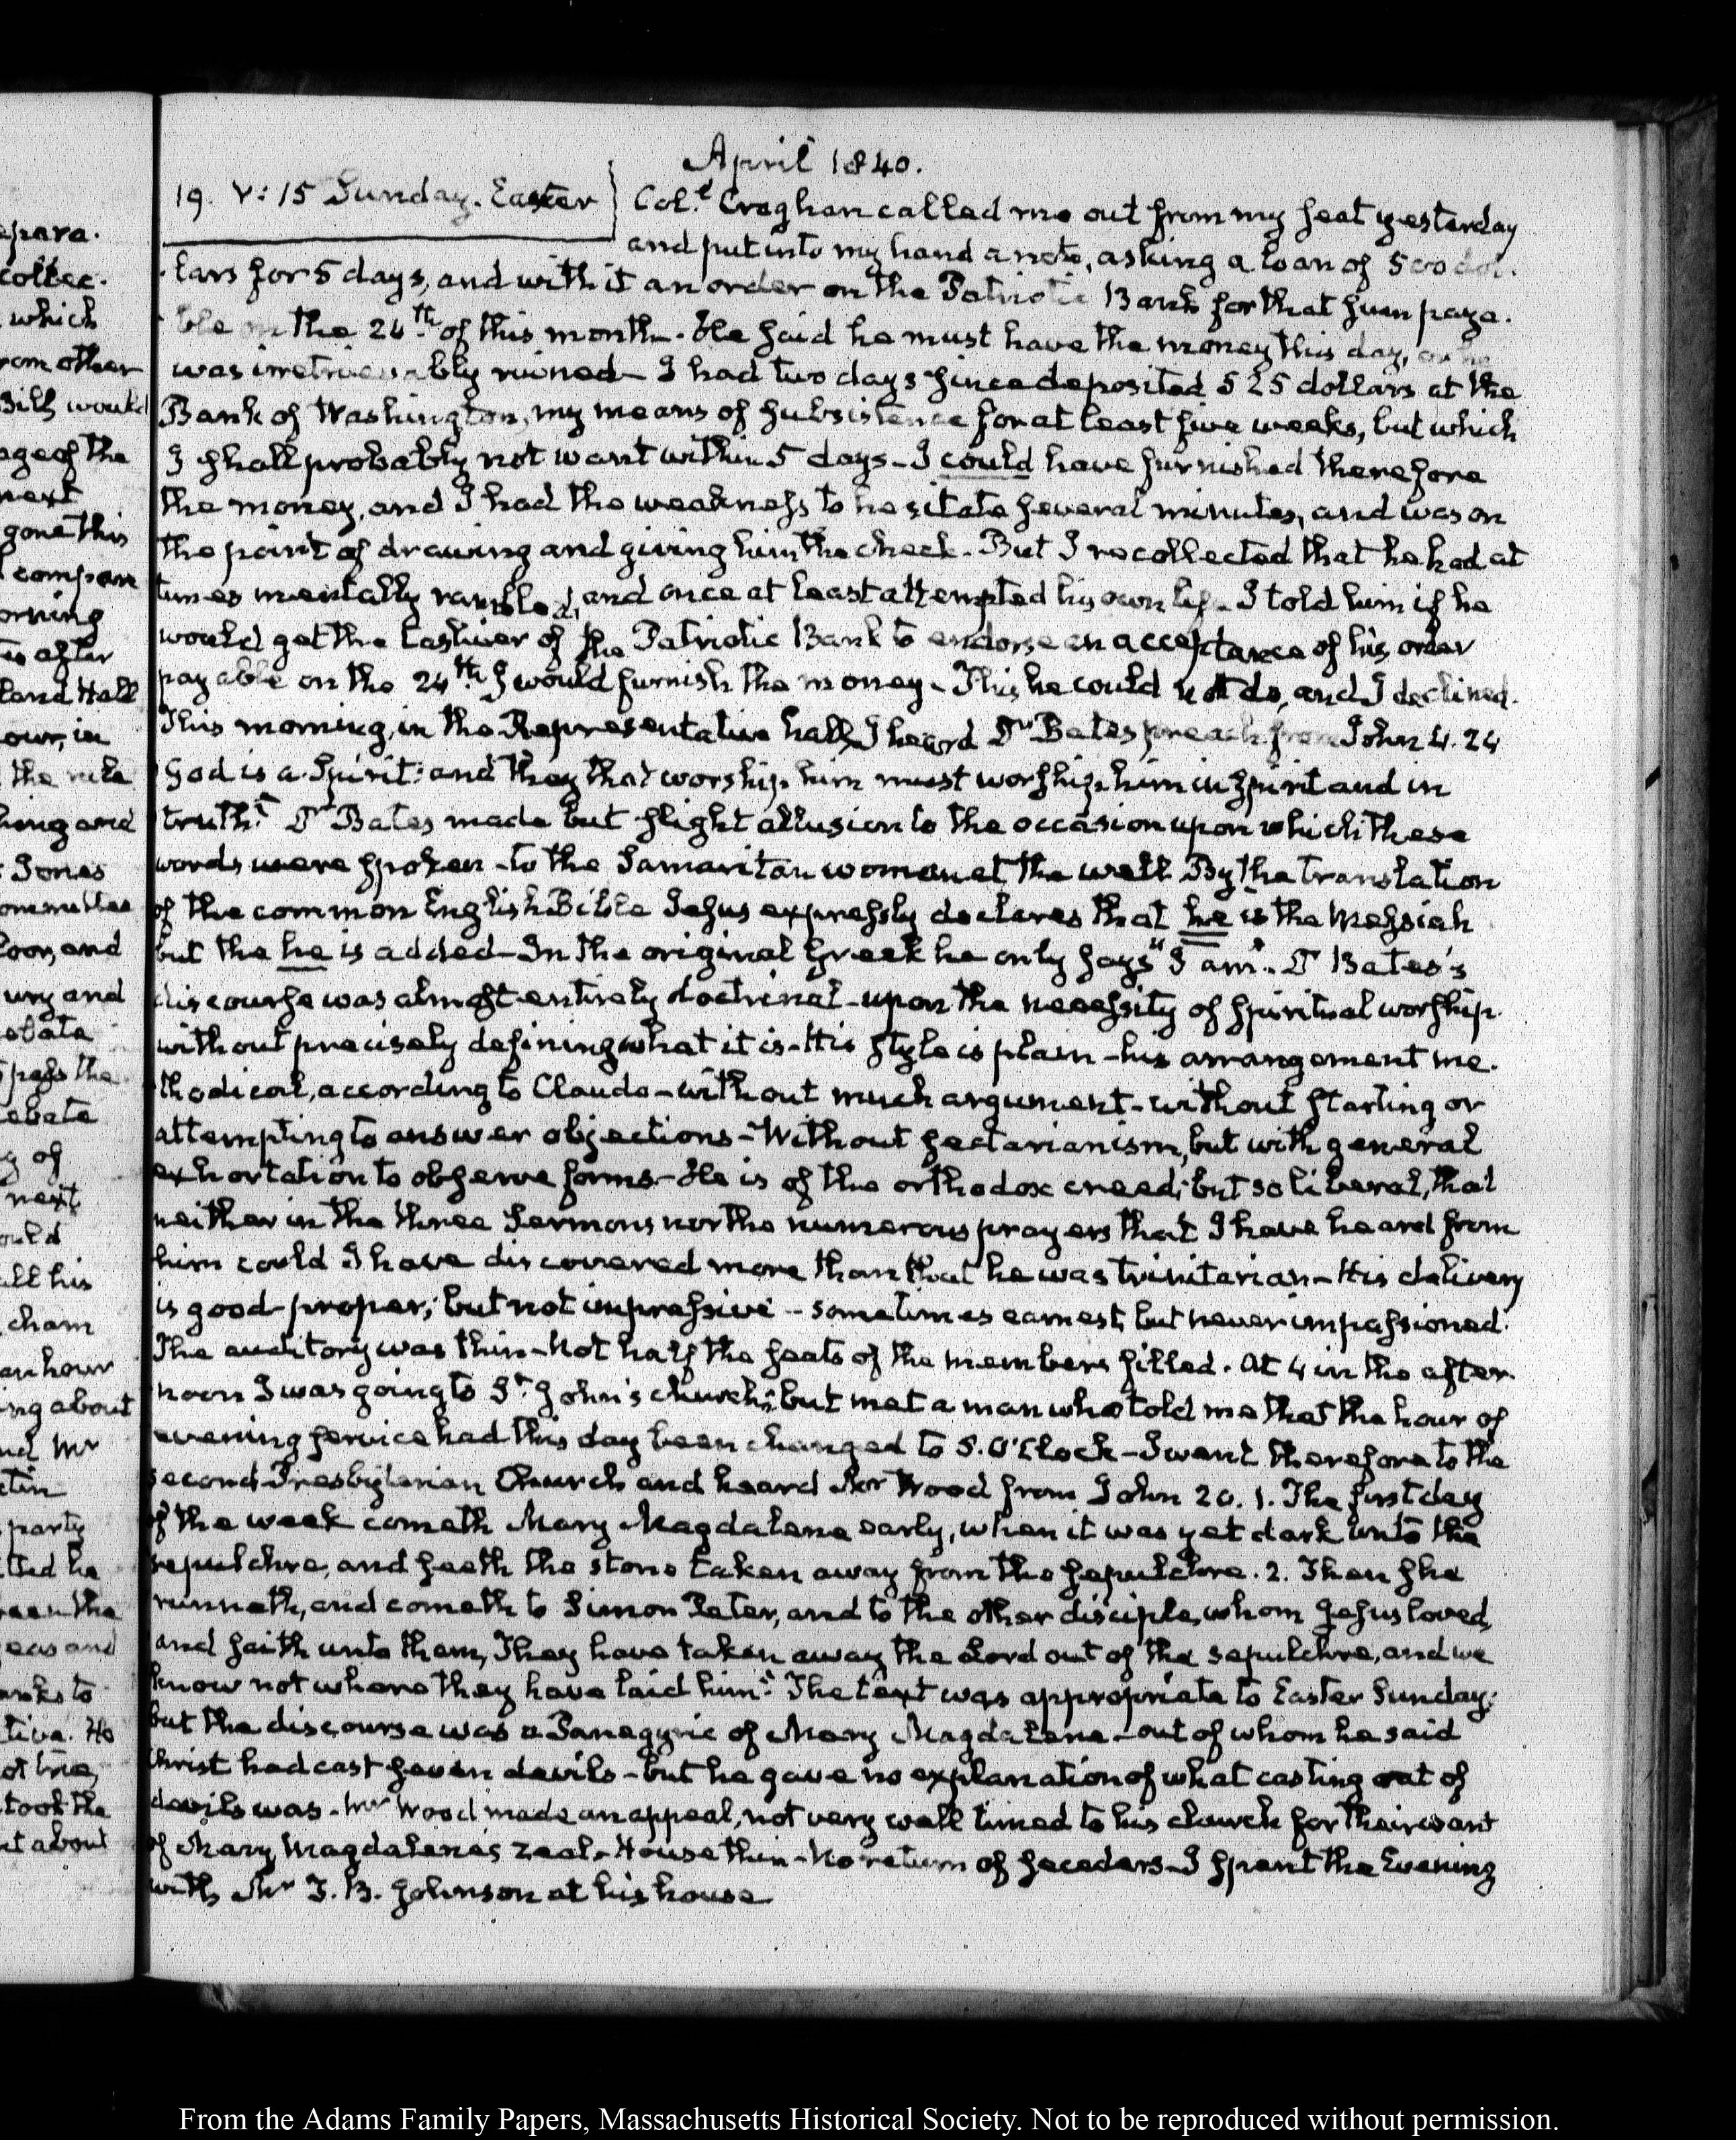 April 1840.
19. V:15 Sunday. Easter
Col.l Croghan called me out from my seat yesterday
and put into my hand a note, asking a loan of 500 dol-
lars for 5 days, and with it an order on the Patriotic Bank for that sum paya-
ble on the 24th of this month. He said he must have the money this day, or he
was irretrievably ruined – I had two days since deposited 525 dollars at the
Bank of Washington, my means of subsistence for at least five weeks, but which
I shall probably not want within 5 days – I could have furnished therefore
the money, and I had the weakness to hesitate several minutes, and was on
the point of drawing and giving him the check – But I recollected that he had at
times mentally rambled, and once at least attempted his own life – I told him if he
would get the Cashier of the Patriotic Bank to endorse an acceptance of his order
payable on the 24th I would furnish the money – This he could not do, and I declined.
This morning, in the Representative hall, I heard Dr Bates preach from John 4. 24
God is a Spirit: and they that worship him must worship him in spirit and in
truth." Dr Bates made but slight allusion to the occasion upon which these
words were spoken – to the Samaritan woman at the well By the translation
of the common English Bible Jesus expressly declares that he is the Messiah
but the he is added – In the original Greek he only says "I am". Dr Bates's
discourse was almost entirely doctrinal – upon the necessity of spiritual worship
without precisely defining what it is – His style is plain – his arrangement me-
thodical, according to Claude – without much argument – without starting or
attempting to answer objections – Without sectarianism, but with general
exhortation to observe forms – He is of the orthodox creed; but so liberal, that
neither in the three Sermons nor the numerous prayers that I have heard from
him could I have discovered more than that he was trinitarian – His delivery
is good – proper; but not impressive – sometimes earnest, but never impassioned.
The auditory was thin – Not half the seats of the members filled. At 4 in the after-
noon I was going to St John's church; but met a man who told me that the hour of
evening service had this day been changed to 5. O'Clock – I went therefore to the
second Presbyterian Church and heard Mr Wood from John 20. 1. The first day
of the week cometh Mary Magdalene early, when it was yet dark unto the
sepulchre, and seeth the stone taken away from the sepulchre. 2. Then she
runneth, and cometh to Simon Peter, and to the other disciple, whom Jesus loved,
and saith unto them, They have taken away the Lord out of the sepulchre, and we
know not where they have laid him." The text was appropriate to Easter Sunday;
but the discourse was a Panegyric of Mary Magdalene – out of whom he said
Christ had cast seven devils – but he gave no explanation of what casting out of
devils was – Mr Wood made an appeal, not very well timed to his church for their want
of Mary Magdalene's zeal – House thin – No return of seceders – I spent the Evening
with Mr J. B. Johnson at his house
From the Adams Family Papers, Massachusetts Historical Society. Not to be reproduced without permission.